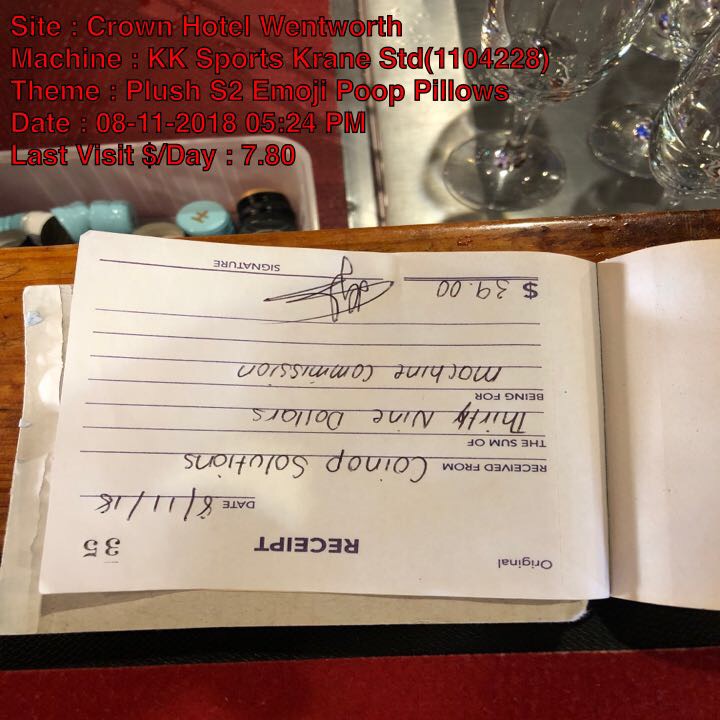 Site : Crown Hotel Wentworth
Machine : KK Sports Krane Std(1104228)
Theme : Plush S2 Emoji Poop Pillows
Date : 08-11-2018 05:24 PM
Last Visit $/Day : 7.80
Original
RECEIPT
35
DATE 8/11/18
RECEIVED FROM Coinop Solutions
THE SUM OF
Thirty Nine Dollars
BEING FOR
Machine Commission
$ 39.00
SIGNATURE